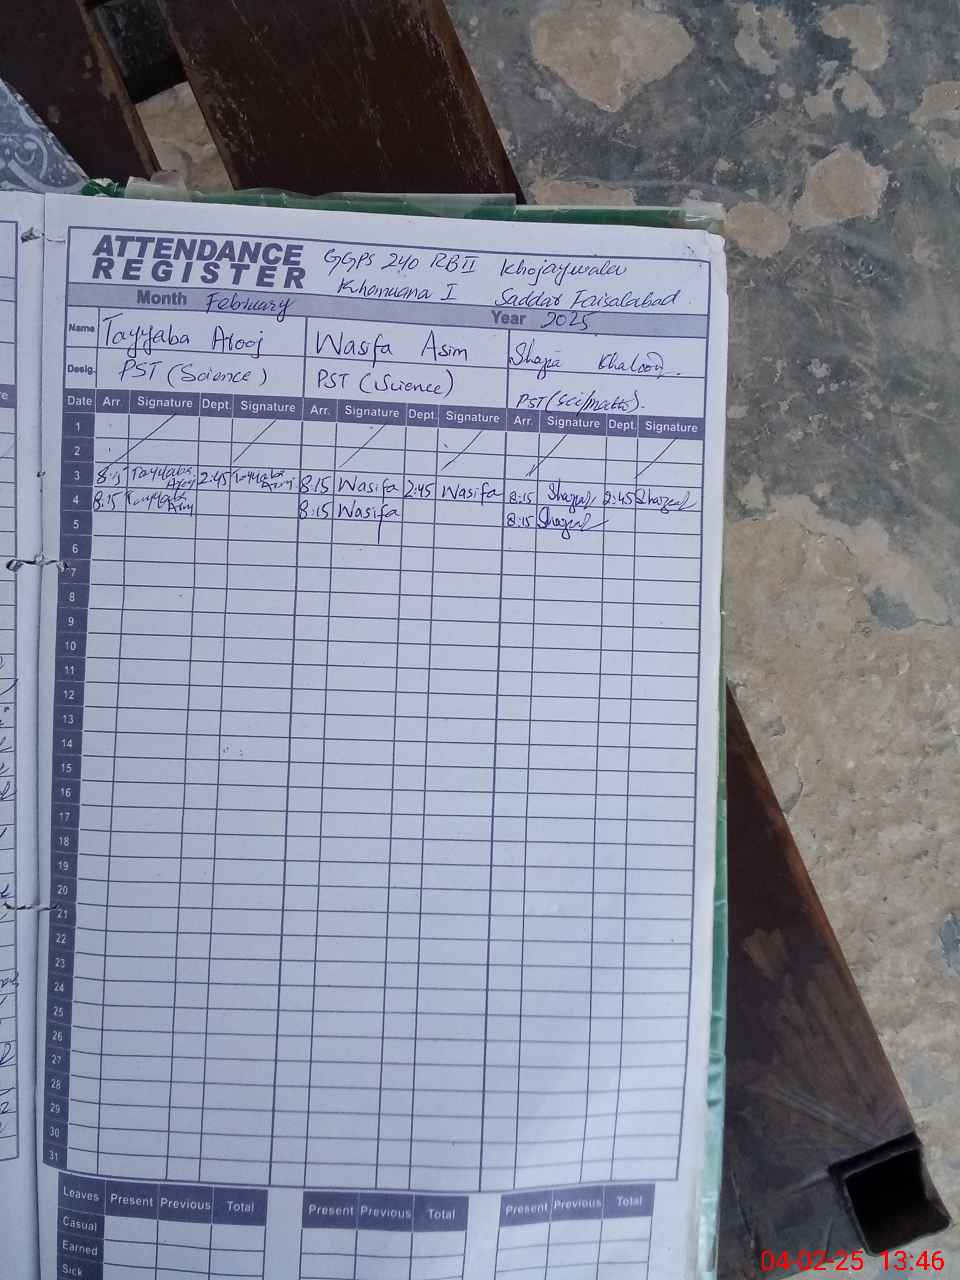 ATTENDANCE REGISTER
GGPS 240 RB II Khojaywala
Khanuana I Saddar Faisalabad.
Month February Year 2025
Name Tayyaba Arooj Wasifa Asim Shazia
Desig. PST (Science) PST (Science) PST (Sci/maths).
Date Arr. Signature Dept. Signature Arr. Signature Dept. Signature Arr. Signature Dept. Signature
1
2
3 8:15 Tayyaba Arooj 2:45 Tayyaba Arooj 8:15 Wasifa 2:45 Wasifa 8:15 2:45
4 8:15 Tayyaba Arooj 8:15 Wasifa 8:15
5
6
7
8
9
10
11
12
13
14
15
16
17
18
19
20
21
22
23
24
25
26
27
28
29
30
31
Leaves Present Previous Total Present Previous Total Present Previous Total
Casual
Earned
Sick
04-02-25 13:46